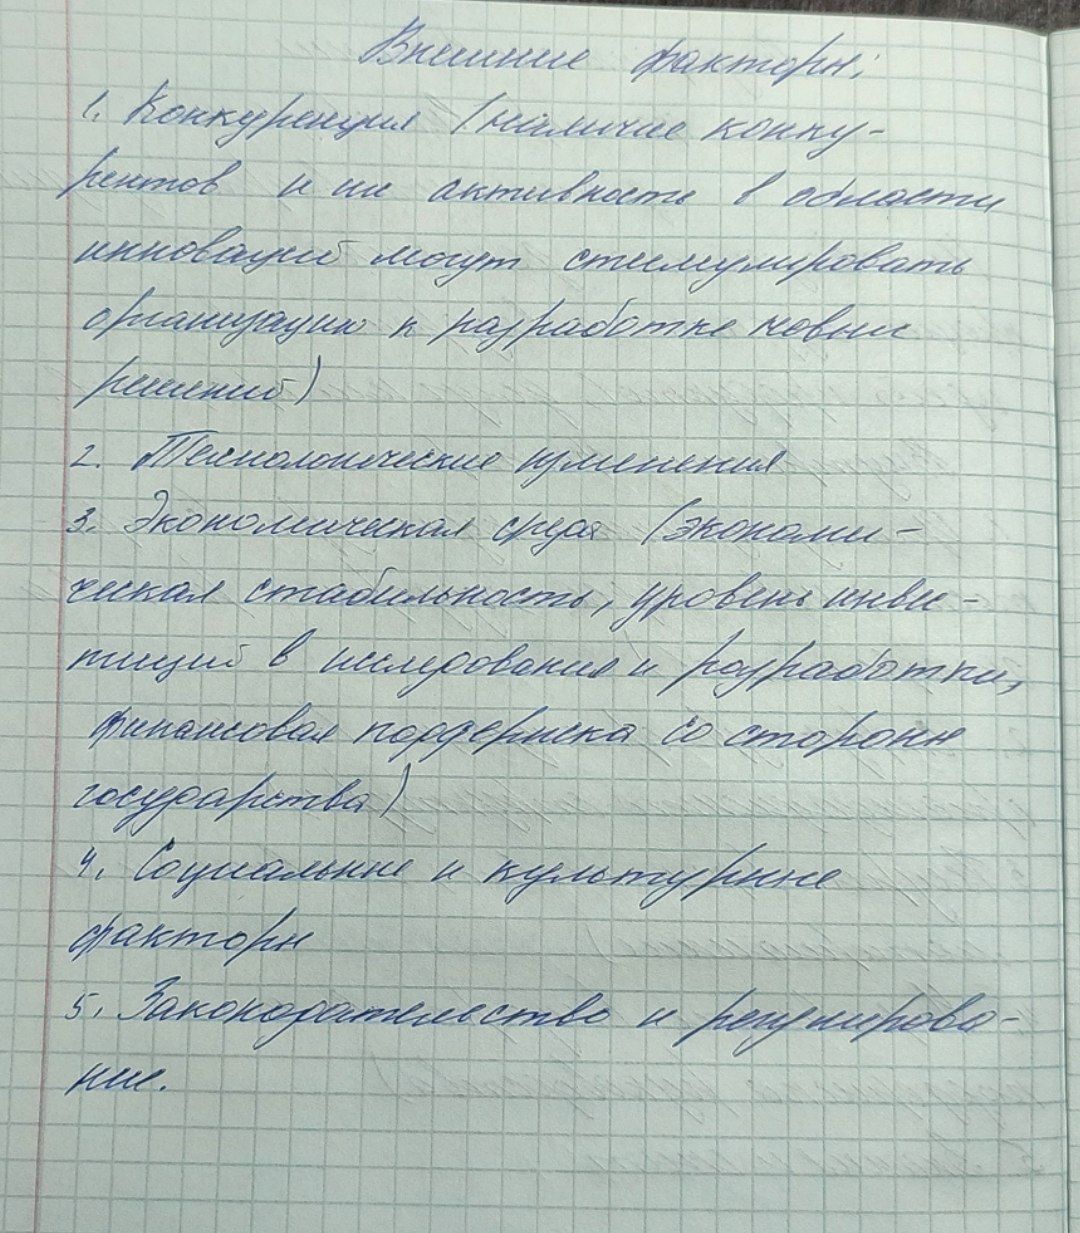 Внешние факторы:
1. Конкуренция (наличие конку-
рентов и их активность в области
инноваций могут стимулировать
организацию к разработке новых
решений)
2. Технологические изменения
3. Экономическая среда (экономи-
ческая стабильность, уровень инве-
тиций в исследования и разработки,
финансовая поддержка со стороны
государства)
4. Социальные и культурные
факторы
5. Законодательство и регулирова-
ние.